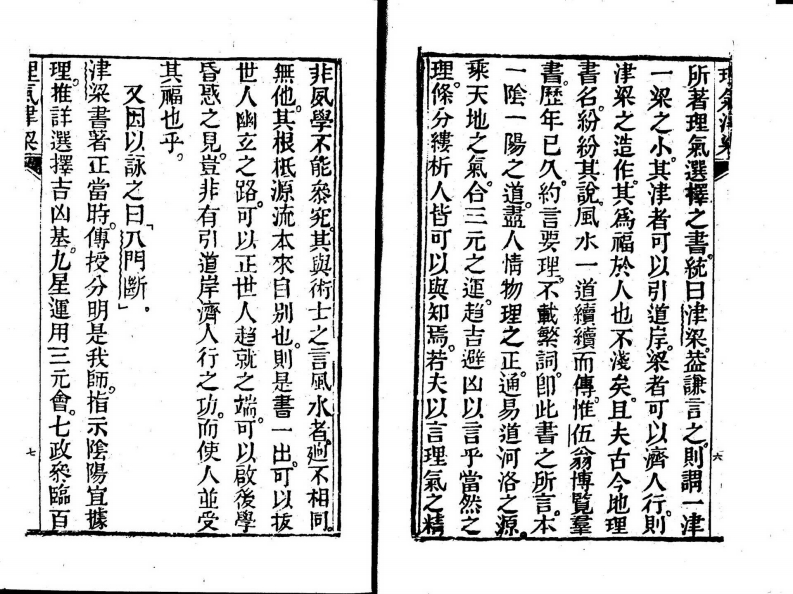 理氣津梁
六
所著理氣選擇之書統曰津梁。蓋謙言之。則謂一津
一梁之小。其津者可以引道岸。梁者可以濟人行。則
津梁之造作。其爲福於人也不淺矣。且夫古今地理
書名。紛紛其說。風水一道續續而傳。惟伍翁博覽羣
書。歷年已久。約言要理。不載繁詞。卽此書之所言。本
一陰一陽之道。盡人情物理之正。通易道河洛之源。
乘天地之氣。合三元之運。趨吉避凶以言乎當然之
理。條分縷析。人皆可以與知焉。若夫以言理氣之精
非夙學不能叅究。其與術士之言風水者。迥不相同。
無他。其根柢源流本來自別也。則是書一出。可以拔
世人幽玄之路。可以正世人趨就之端。可以啟後學
昏惑之見。豈非有引道岸濟人行之功。而使人並受
其福也乎。
又因以詠之曰「八門斷」。
津梁書著正當時。傳授分明是我師。指示陰陽宜據
理。推詳選擇吉凶基。九星運用三元會。七政叅臨百
理氣津梁
七